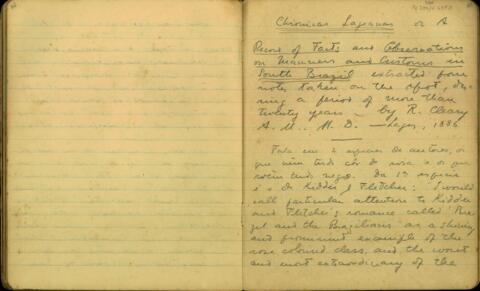 Chronicas Lageanas or A
Record of Facts and Observations
on Manners and Customs in
South Brazil extracted from
notes taken on the spot, du-
ring a period of more than
twenty years – by R. Cleary
A. M., M. D. – Lages, 1886
Fala em 2 especies de autores, os
que vêem tudo côr de rosa e os que
vêem tudo negro. Da 1ª especie
é o Dr Kidder & Fletcher: I would
call particular attention to Kidder
and Fletcher's romance called
and the Brazilians as a shining
and prominent example of the
rose coloured class, and the worst
and most extraordinary of the